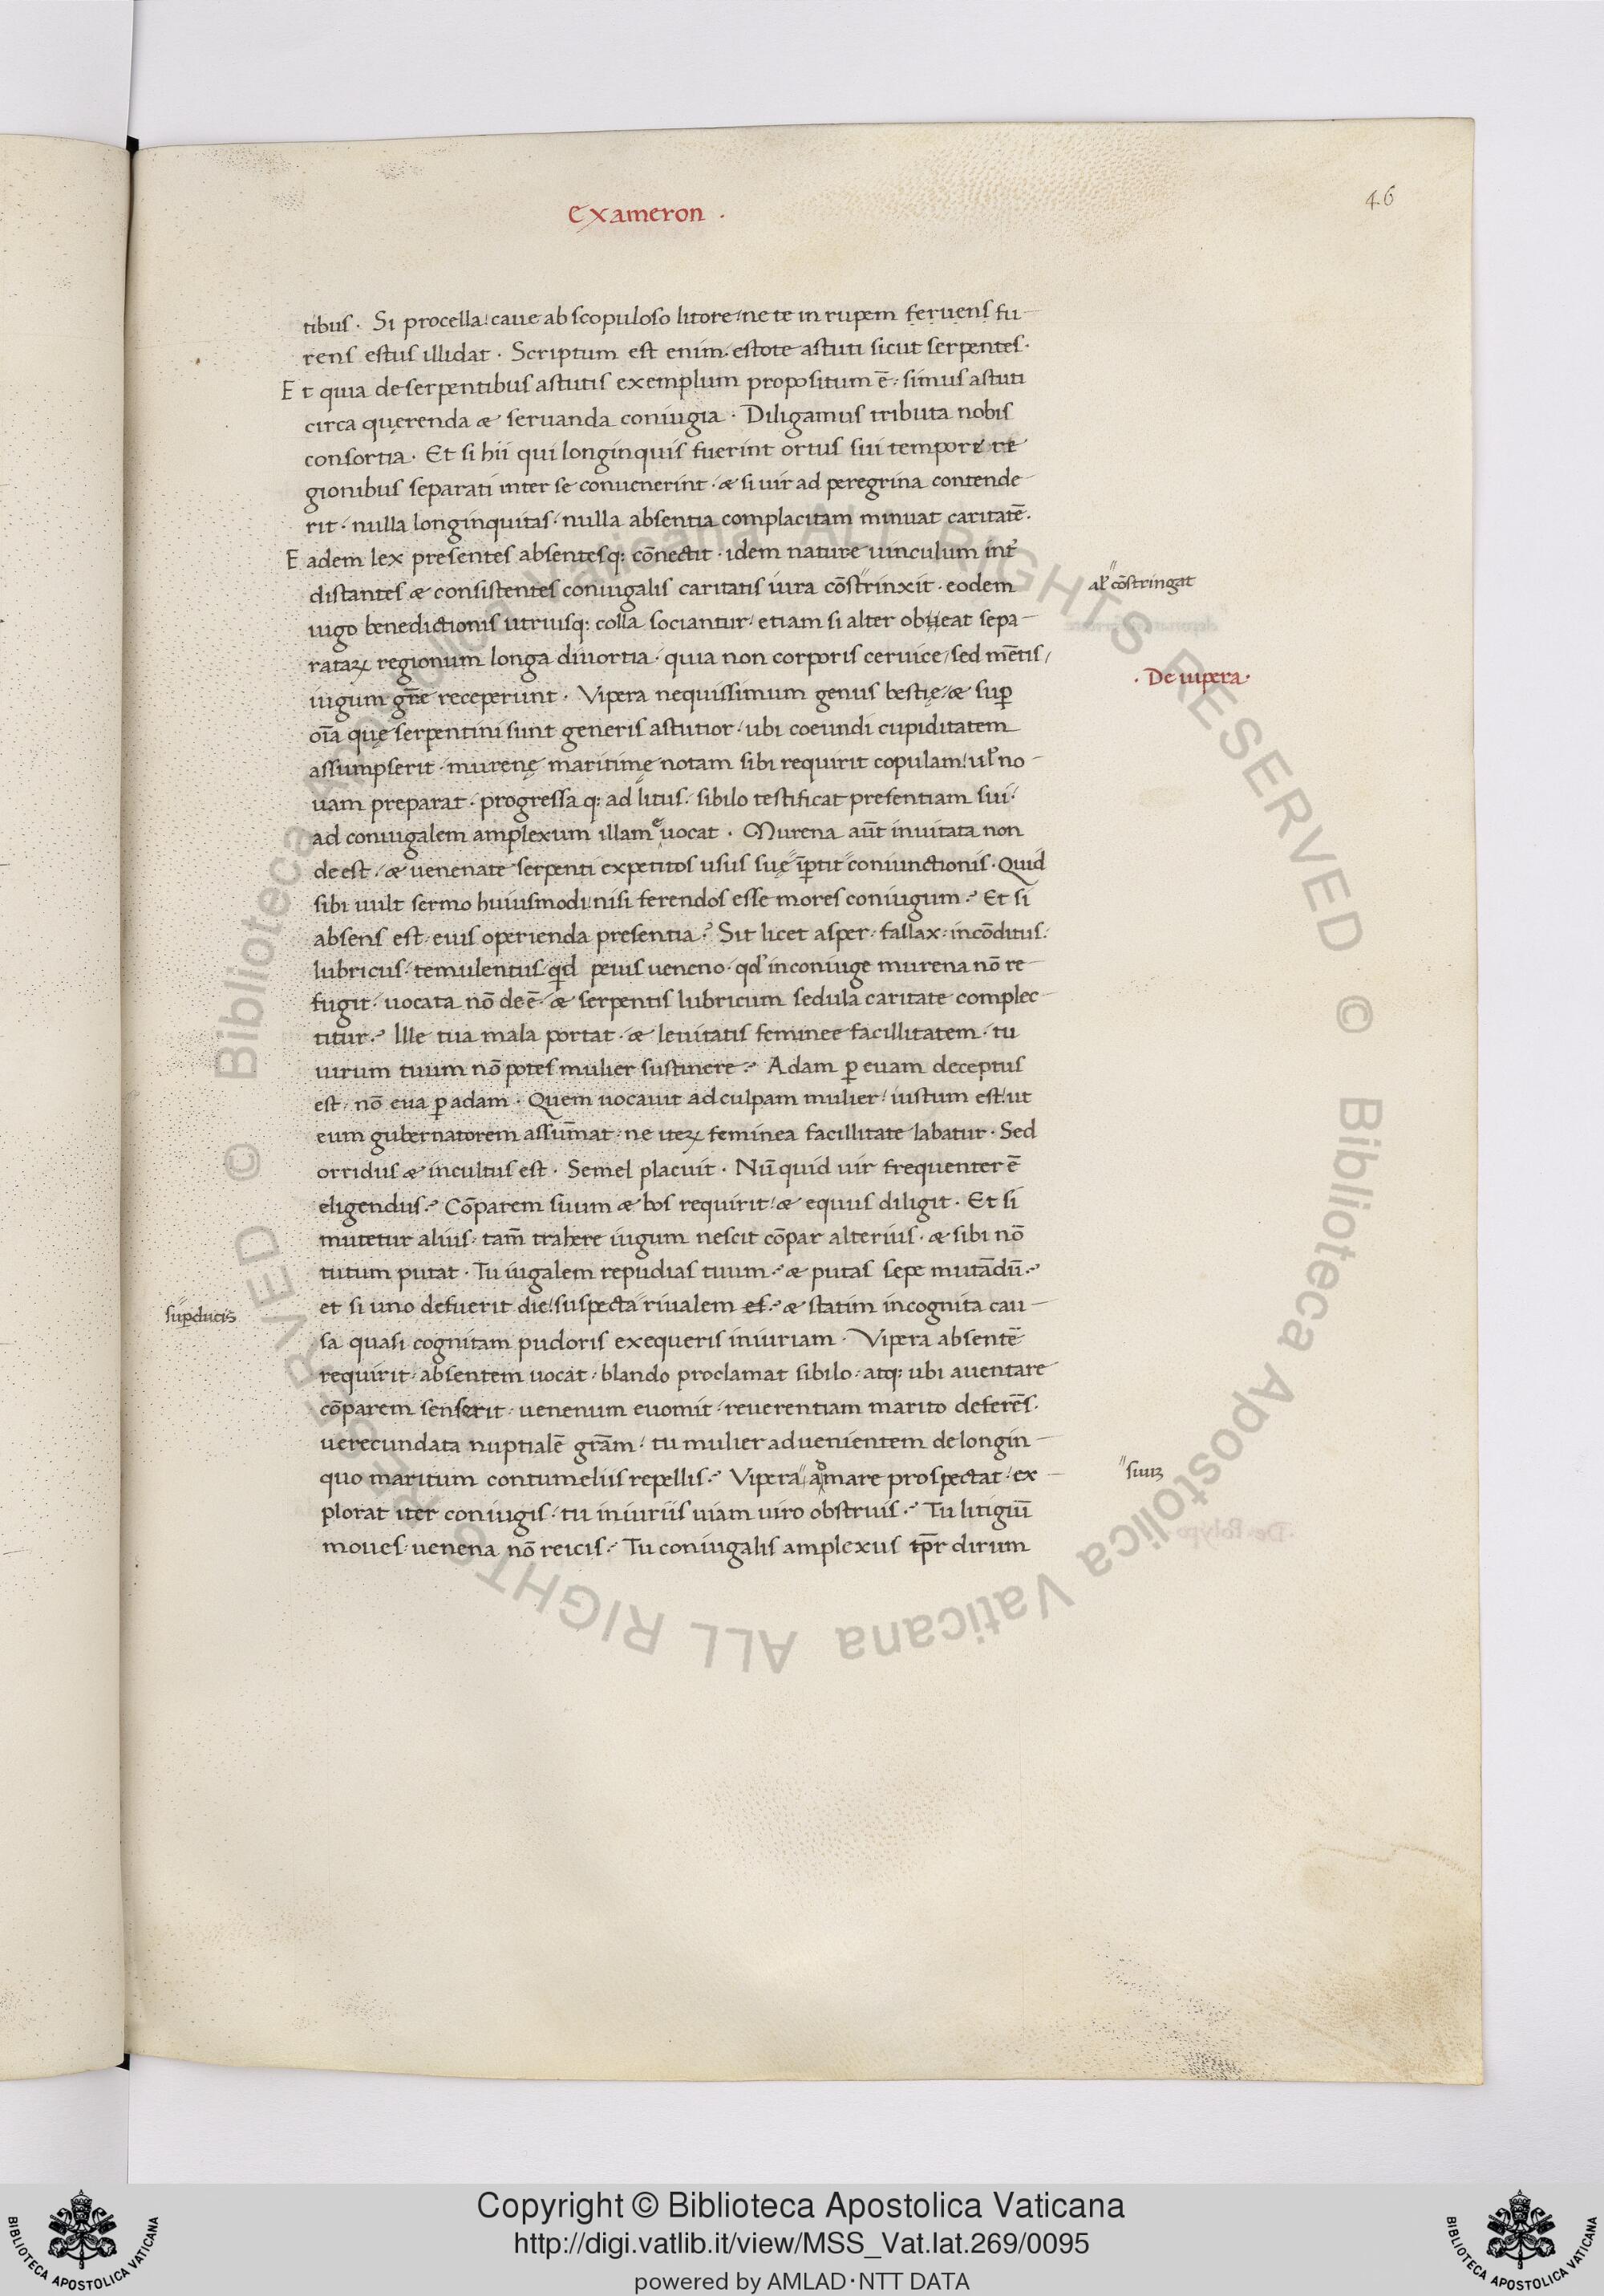 Exameron ·
46
tibus · Si procella: caue ab scopuloso litore / ne te in rupem feruens fu-
rens estus illidat · Scriptum est enim · estote astuti sicut serpentes ·
Et quia de serpentibus astutis exemplum propositum ē · simus astuti
circa quęrenda & seruanda coniugia · Diligamus tributa nobis
consortia · Et si hii qui longinquis fuerint ortus sui tempore re
gionibus separati inter se conuenerint · & si uir ad peregrina contende-
rit · nulla longinquitas · nulla absentia complacitam minuat caritatē ·
Eadem lex presentes absentesq: cōnectit · idem nature uinculum int̄
distantes & consistentes coniugalis caritatis iura cōstrinxit · eodem
al' cōstringat
iugo benedictionis utriusq: colla sociantur · etiam si alter obeat sepa-
rataꝝ regionum longa diuortia · quia non corporis ceruice / sed mētis /
iugum gr̄e receperunt · Vipera nequissimum genus bestię / & sup̄
· De uipera ·
oīa quę serpentini sunt generis astutior · ubi coeundi cupiditatem
assumpserit · murenę maritimę notam sibi requirit copulam / ul' no-
uam preparat · progressa q: ad litus · sibilo testificat presentiam sui ·
ad coniugalem amplexum illam euocat · Murena aūt inuitata non
de est · & uenenate serpenti expetitos usus suę īptit coniunctionis · Quid
sibi uult sermo huiusmodi nisi ferendos esse mores coniugum ? Et si
absens est · eius operienda presentia ? Sit licet asper · fallax · incōditus ·
lubricus · temulentus qid peius ueneno · qd' in coniuge murena nō re-
fugit · uocata nō de ē · & serpentis lubricum sedula caritate complec-
titur ? Ille tua mala portat · & leuitatis feminee facillitatem · tu
uirum tuum nō potes mulier sustinere ? Adam ꝑ euam deceptus
est / nō eua ꝑ adam · Quem uocauit ad culpam mulier / iustum est / ut
eum gubernatorem assūmat · ne iteꝝ feminea facillitate labatur · Sed
orridus & incultus est · Semel placuit · Nū quid uir frequenter ē
eligendus ? Cōparem suum & bos requirit / & equus diligit · Et si
mutetur alius · tam̄ trahere iugum nescit cōpar alterius · & sibi nō
tutum putat · Tu iugalem repudias tuum ? & putas sepe mutādū ?
et si uno defuerit die / suspecta riualem es ? & statim incognita cau-
sup̱ducis
sa quasi cognitam pudoris exequeris iniuriam · Vipera absentē
requirit · absentem uocat · blando proclamat sibilo · atq: ubi auentare
cōparem senserit · uenenum euomit · reuerentiam marito deferēs ·
uerecundata nuptialē gr̄am · tu mulier aduenientem de longin-
quo maritum contumeliis repellis ? Vipera amare prospectat · ex-
suuꝫ
plorat iter coniugis · tu iniuriis uiam uiro obstruis ? Tu litigiū
moues · uenena nō reicis ? Tu coniugalis amplexus tp̄r dirum
Copyright © Biblioteca Apostolica Vaticana
http://digi.vatlib.it/view/MSS_Vat.lat.269/0095
powered by AMLAD·NTT DATA
BIBLIOTECA APOSTOLICA VATICANA
BIBLIOTECA APOSTOLICA VATICANA
© Biblioteca Apostolica Vaticana ALL RIGHTS RESERVED © Biblioteca Apostolica Vaticana ALL RIGHTS RESERVED